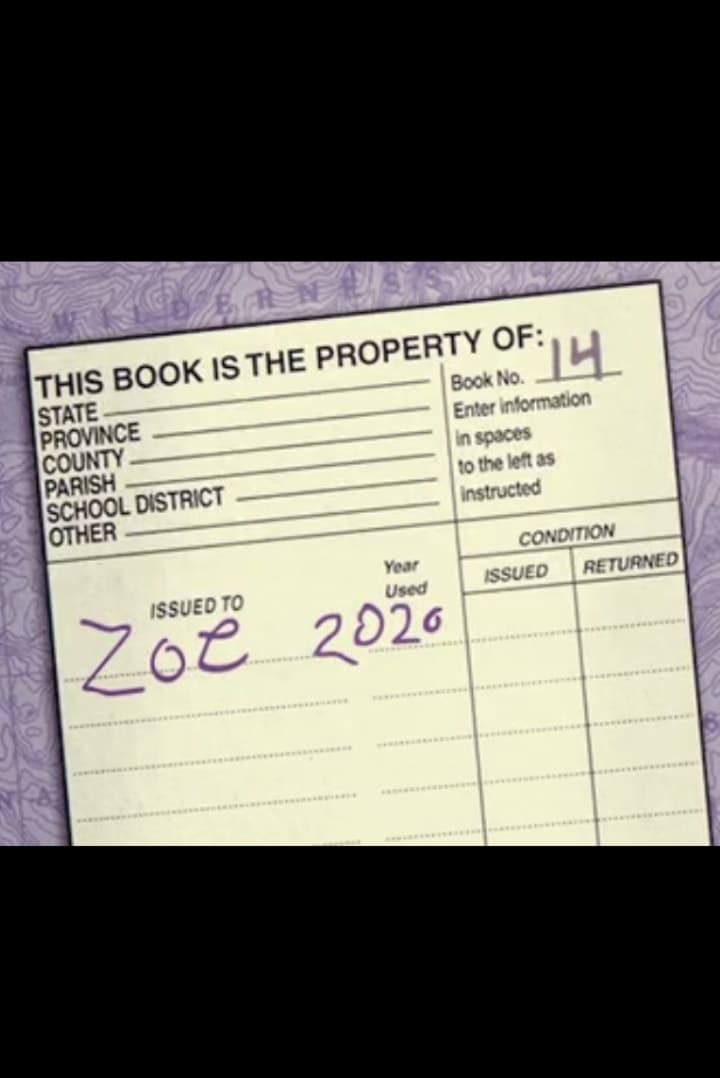 WILDERNESS
THIS BOOK IS THE PROPERTY OF:
STATE
PROVINCE
COUNTY
PARISH
SCHOOL DISTRICT
OTHER
Book No. 14
Enter information
in spaces
to the left as
instructed
CONDITION
ISSUED TO
Year
Used
ISSUED
RETURNED
Zoe 2020